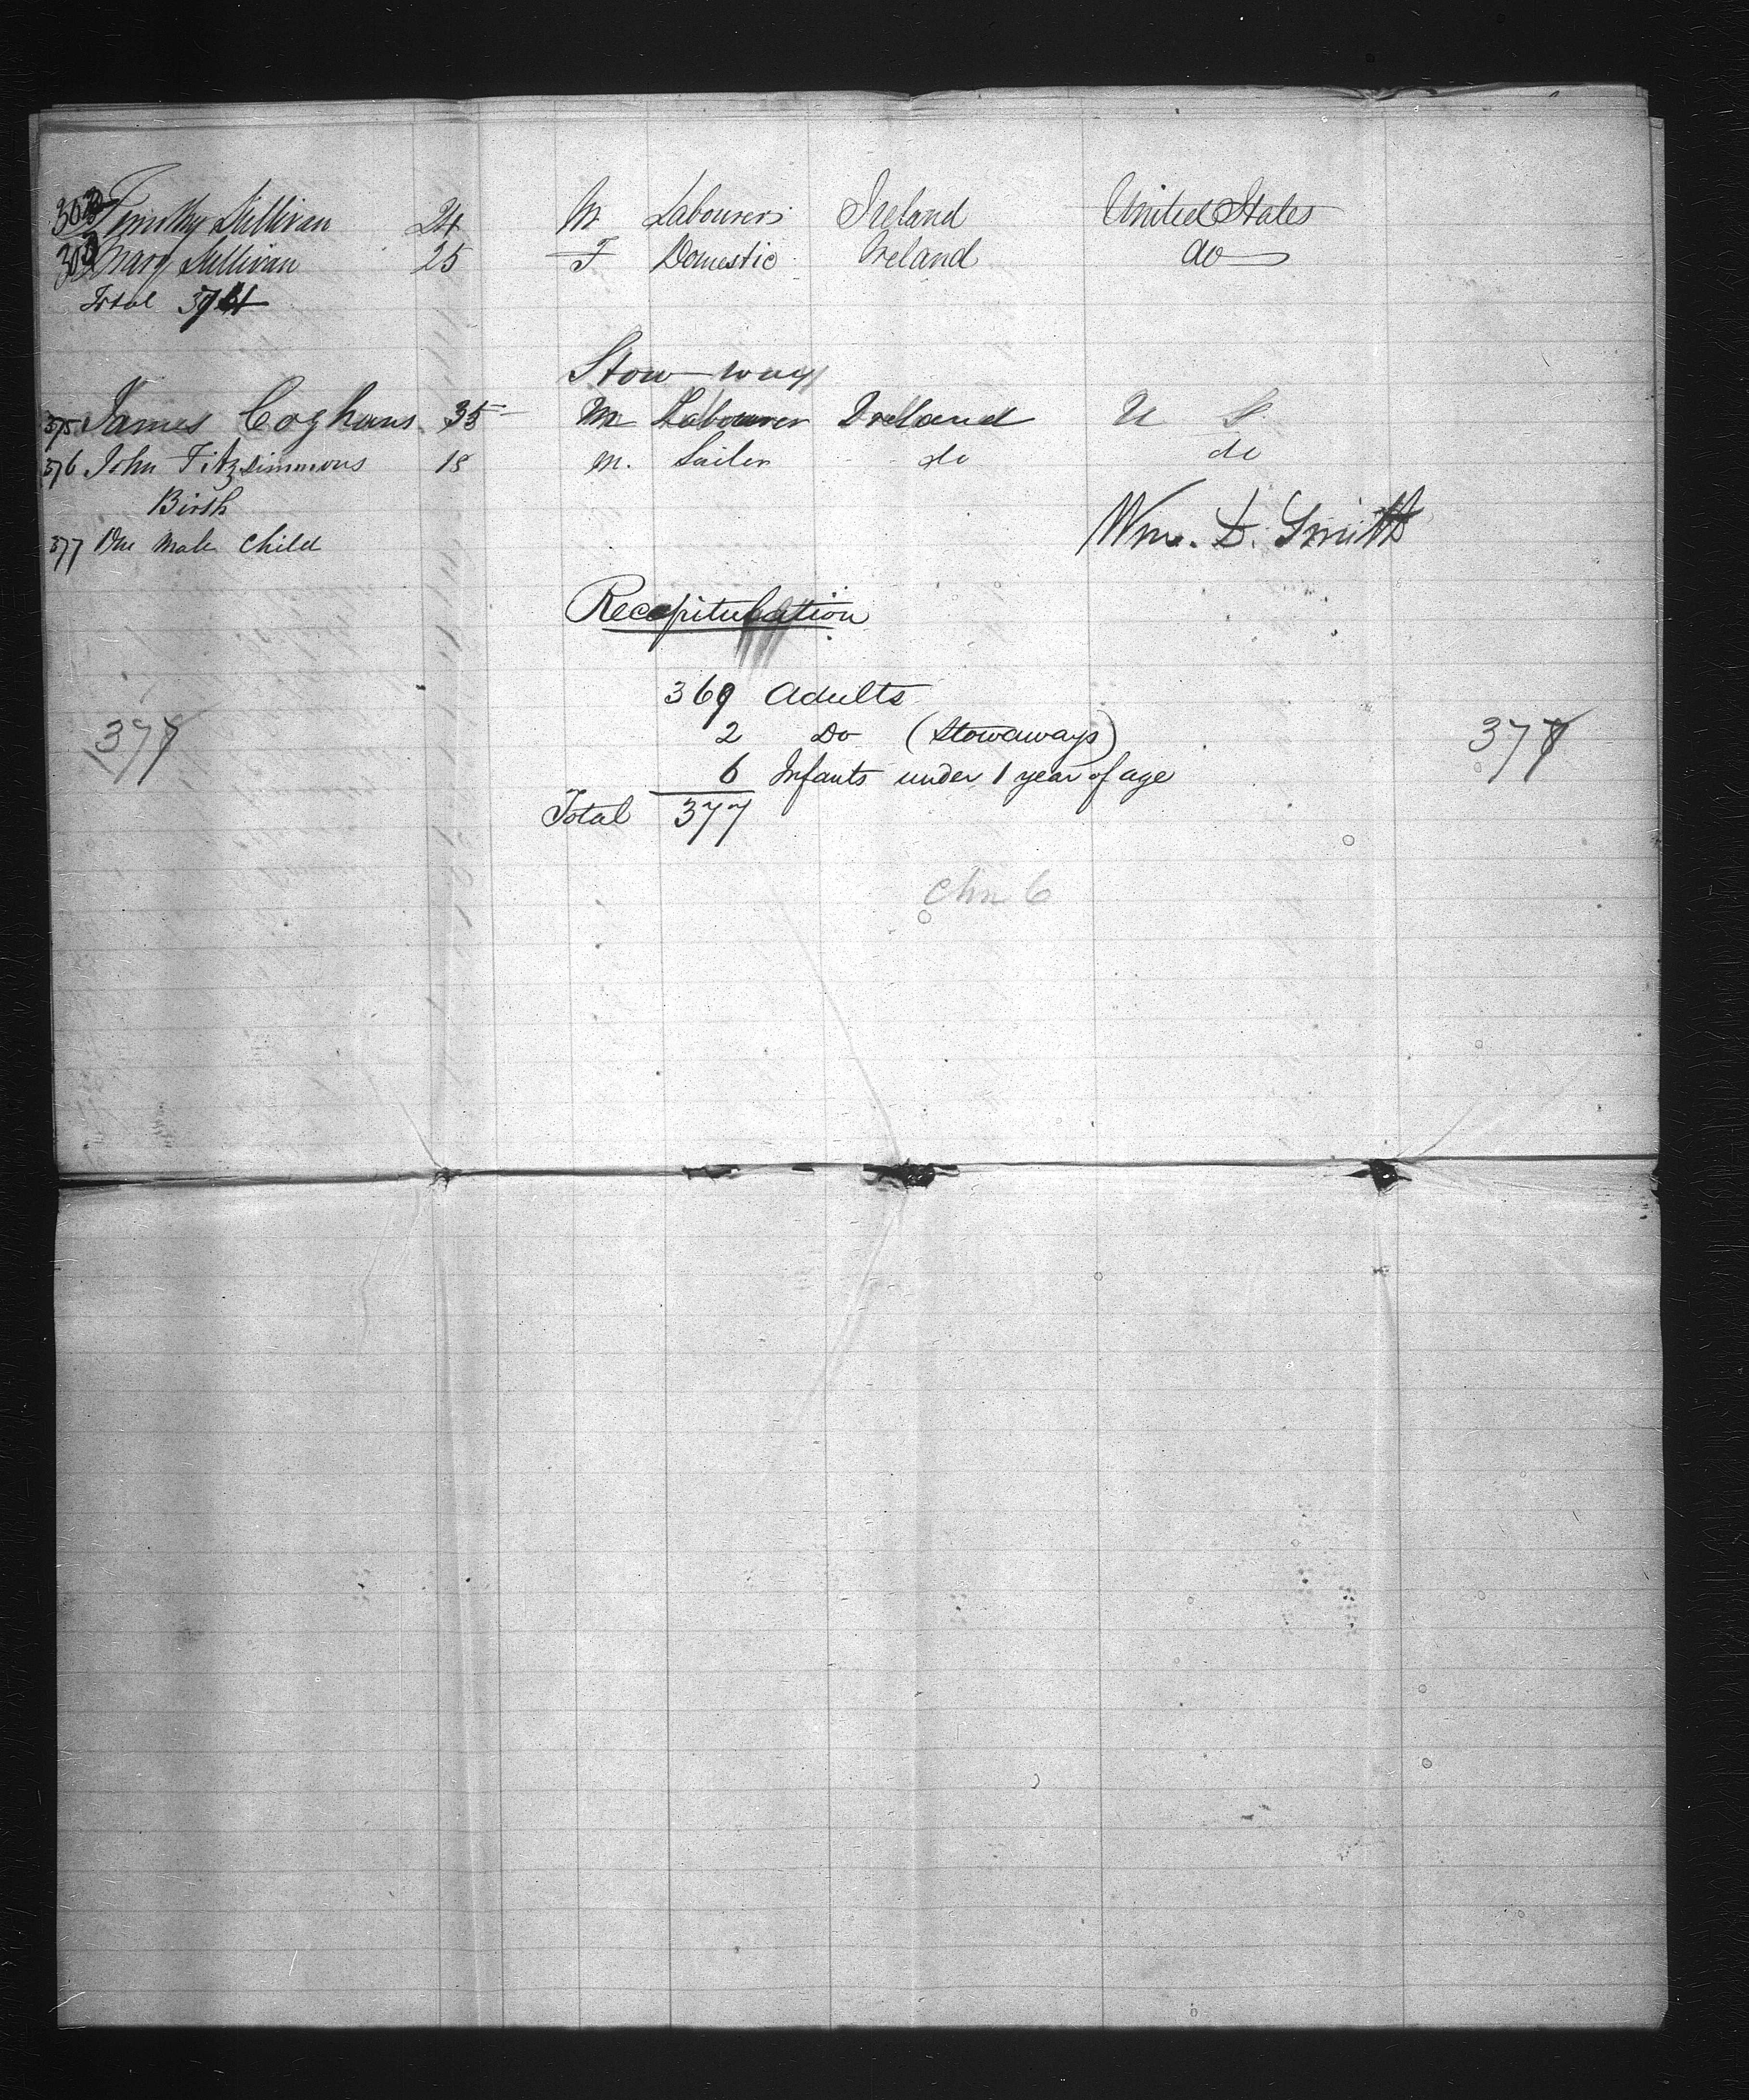 Timothy Sullivan 24 M Labourer Ireland United States
Mary Sullivan 25 F Domestic Ireland do
Total 374
Stow-ways
375 James Coghans 35 M Labourer Ireland U S
376 John Fitzsimmons 18 M. Sailor do do
Birth
Wm. D. Smith
377 One Male Child
Recapitulation
369 Adults
2 Do (Stowaways)
377 377
6 Infants under 1 year of age
Total 377
Chn 6